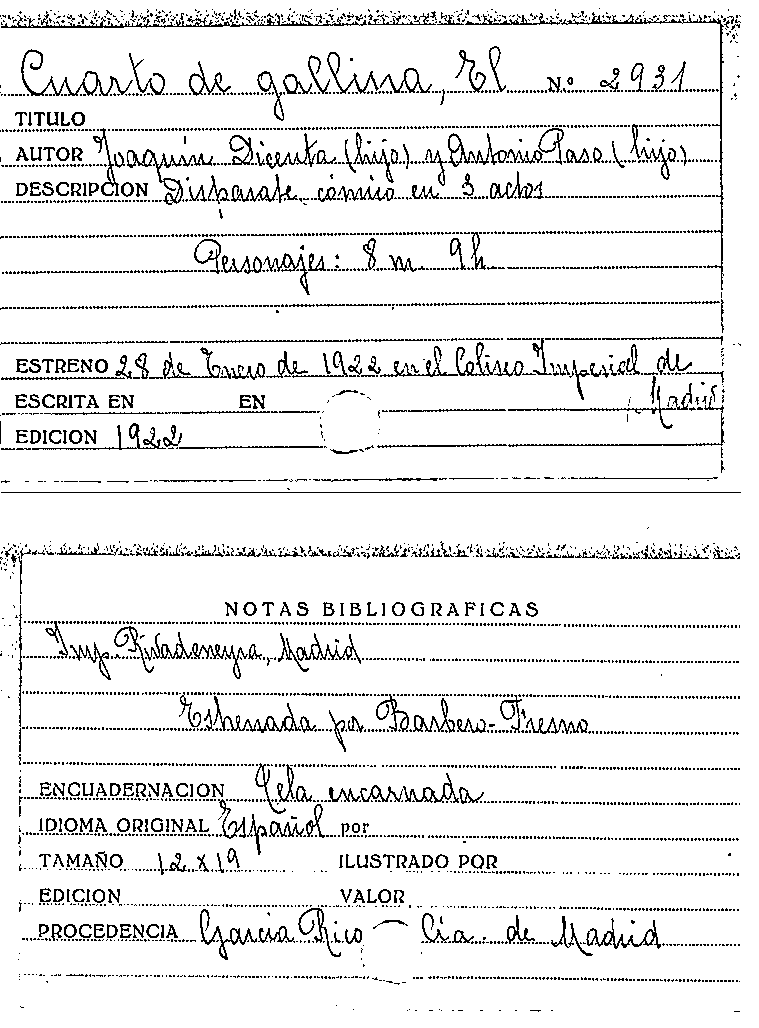 Cuarto de gallina, El Nº 2931
TITULO
AUTOR Joaquín Dicenta (hijo) y Antonio Paso (hijo)
DESCRIPCION Disparate cómico en 3 actos
Personajes: 8 m. 9h
ESTRENO 28 de Enero de 1922 en el Coliseo Imperial de
ESCRITA EN EN Madrid
EDICION 1922
NOTAS BIBLIOGRAFICAS
Imp. Rivadeneyra, Madrid
Estrenada por Barbero-Fresno
ENCUADERNACION Tela encarnada
IDIOMA ORIGINAL Español por
TAMAÑO 12 x 19 ILUSTRADO POR
EDICION VALOR
PROCEDENCIA García Rico Cía. de Madrid